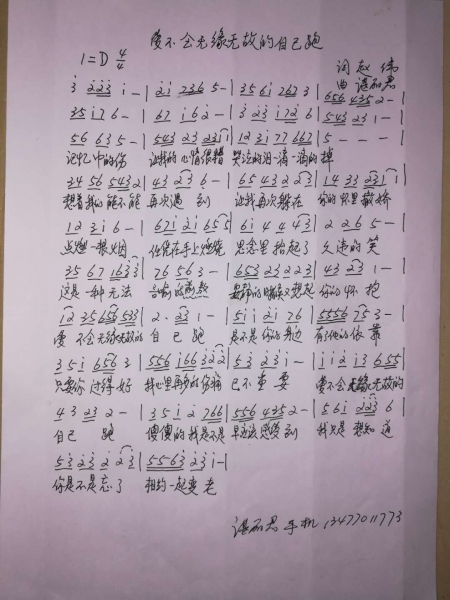 爱不会无缘无故的自己跑
1=D 4/4
词 赵 伟
曲 谌丽君
3 2 2 3 i - | 2 i 7 3 6 5 - | 3 5 6 i 7 6 7 3 | 6 5 6 4 3 5 2 - |
3 5 i 7 6 - | 6 7 i 6 2 - | 3 2 3 i 7 2 6 | 5 4 3 2 3 1 - |
5 6 6 3 5 - | 5 4 3 2 3 2 3 1 | 1 2 3 i 7 7 6 6 7 | 5 - - - |
记忆中的伤 让我的心情很糟 哭泣的泪一滴一滴的掉
3 4 5 6 5 4 3 2 | 4 3 2 3 6 - | 6 5 4 3 2 2 3 | 1 4 3 3 2 3 1 1 |
想着我们能不能 再次遇到 让我再次躲在 你的怀里撒娇
1 2 3 i 6 - | 6 7 i 2 i 6 5 5 | 6 i 4 4 4 3 | 2 2 6 5 - |
点燃一根烟 任凭在手上燃烧 思念里抬起了 久违的笑
3 5 6 7 1 6 3 3 | 7 6 5 6 3 - | 6 5 3 2 3 2 2 3 | 4 3 2 3 1 - |
这是一种无法 言喻的煎熬 安静的时候又想起 你的怀抱
1 2 3 5 6 5 6 5 3 | 2 · 2 3 1 - | 5 i i 2 i 7 6 | 5 5 5 6 7 5 3 - |
爱不会无缘无故的 自己跑 是不是你的身边 有了他的依靠
3 5 i 6 5 6 3 | 5 5 6 i 6 6 3 2 2 | 5 3 2 3 i - | i 2 i 3 6 5 5 |
只要你过得好 我心里再多的伤痛 已不重要 爱不会无缘无故的
4 3 2 3 2 - | 3 5 i 2 7 6 6 | 5 5 6 4 3 5 2 - | 5 6 i 2 2 3 6 |
自己跑 傻傻的我是不是 早该感受到 我只是想知道
5 3 2 3 2 2 3 | 5 5 6 3 2 3 i - |
你是不是忘了 相约一起变老
谌丽君 手机 13477011773